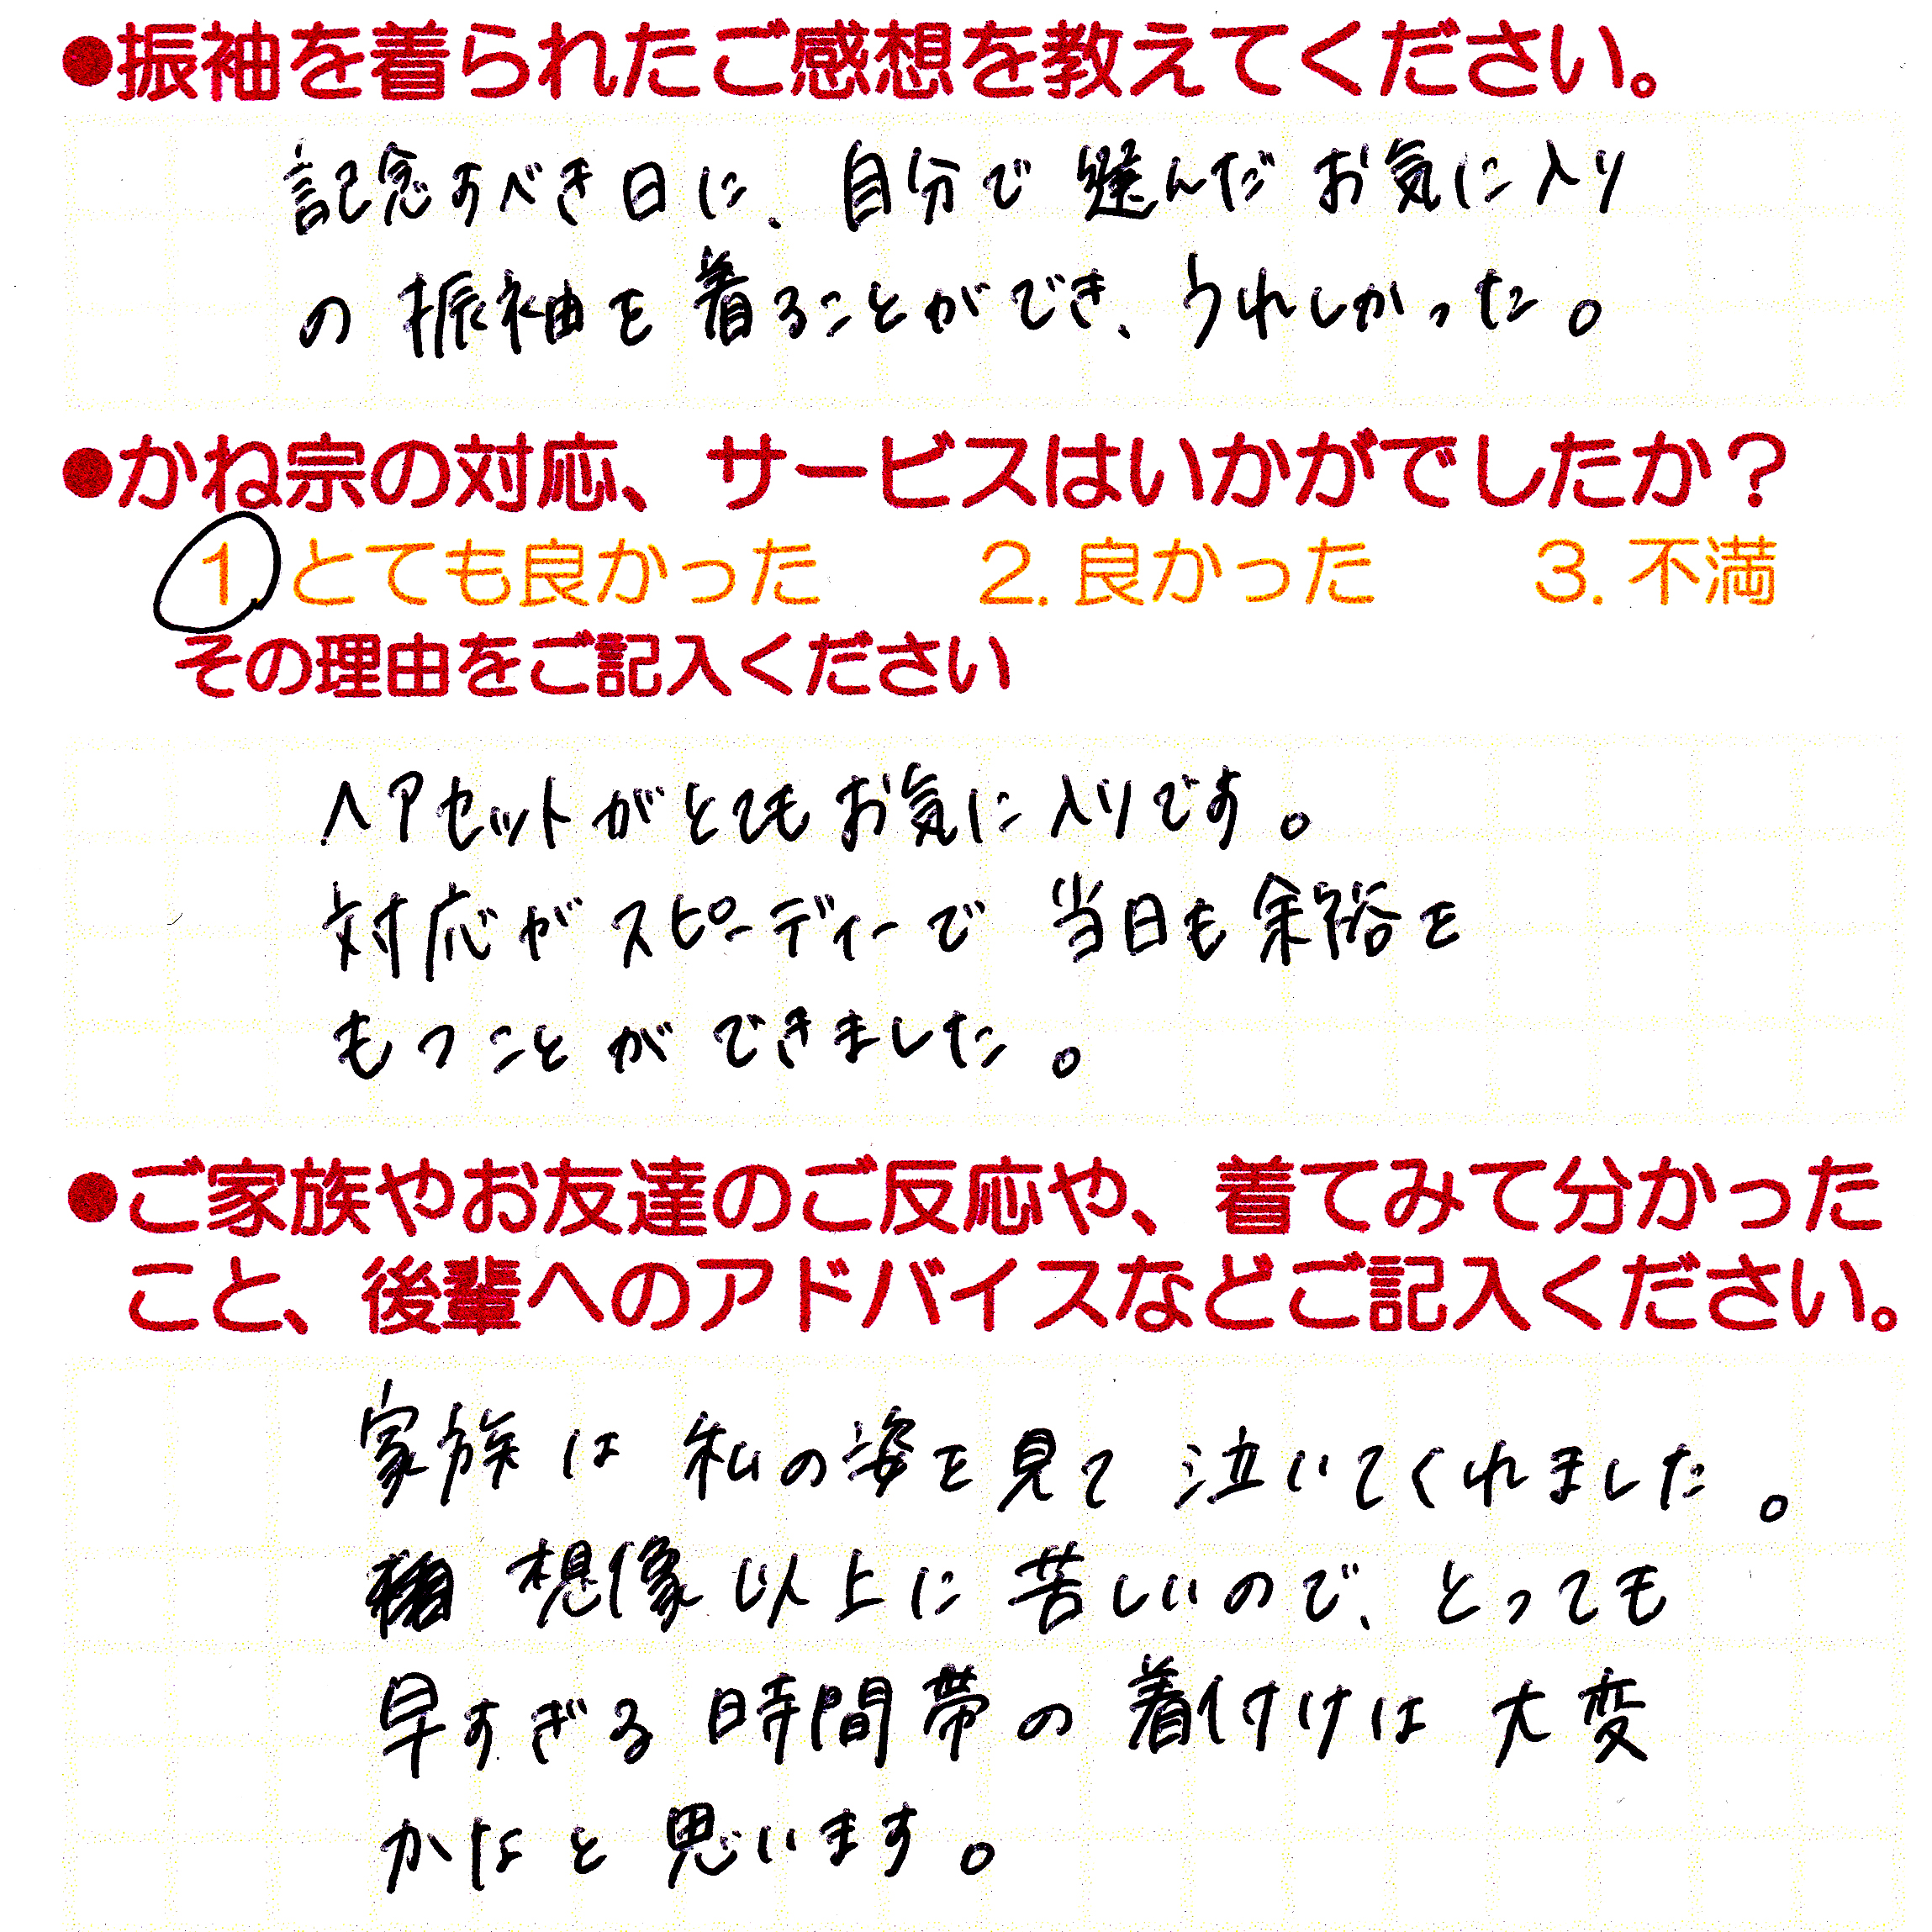 ●振袖を着られたご感想を教えてください。
記念すべき日に、自分で選んだお気に入り
の振袖を着ることができ、うれしかった。
●かね宗の対応、サービスはいかがでしたか？
1.とても良かった 2.良かった 3.不満
その理由をご記入ください
ヘアセットがとてもお気に入りです。
対応がスピーディーで当日も余裕を
もつことができました。
●ご家族やお友達のご反応や、着てみて分かった
こと、後輩へのアドバイスなどご記入ください。
家族は私の姿を見て泣いてくれました。
想像以上に苦しいので、とっても
早すぎる時間帯の着付けは大変
かなと思います。